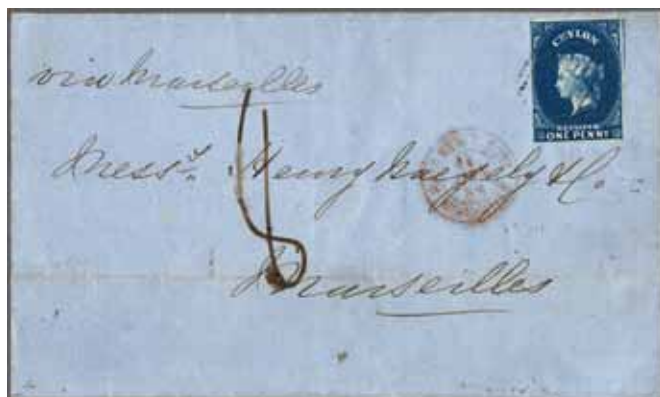 CEYLON
POSTAGE
ONE PENNY
via Marseilles
Messrs. Henry & Co.
Marseilles